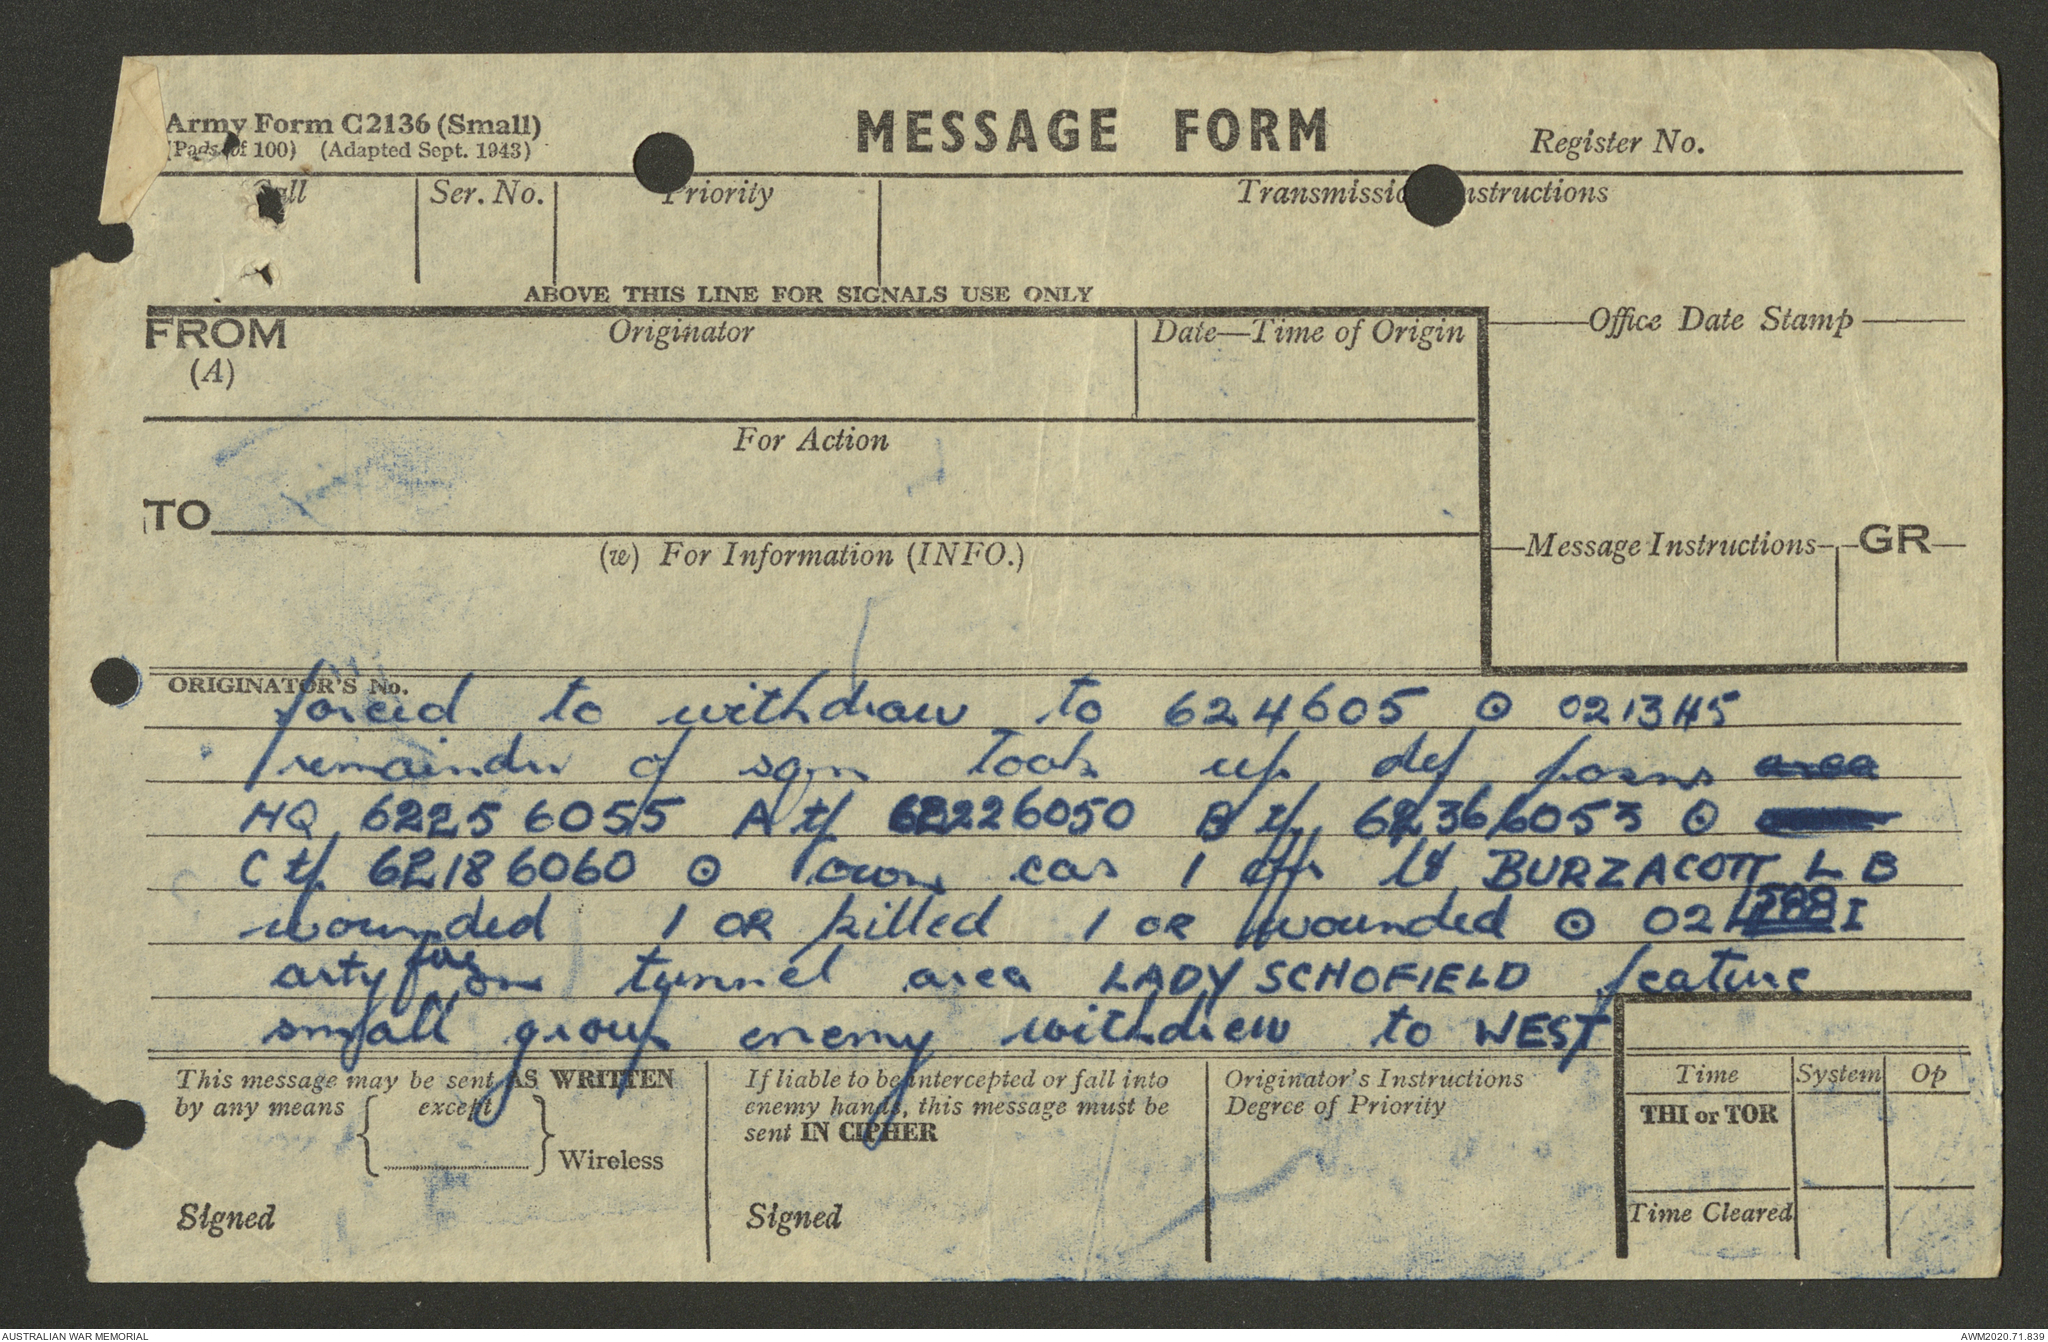 Army Form C2136 (Small)
(Pads of 100) (Adapted Sept. 1943)
MESSAGE FORM
Register No.
Call
Ser. No.
Priority
Transmission Instructions
ABOVE THIS LINE FOR SIGNALS USE ONLY
FROM
(A)
Originator
Date—Time of Origin
Office Date Stamp
For Action
TO
(w) For Information (INFO.)
Message Instructions
GR
ORIGINATOR'S No.
forced to withdraw to 624605 ⊙ 021345
remainder of sqn took up def posns area
HQ 62256055 A tp 62226050 B tp 62366053 ⊙
C tp 62186060 ⊙ own cas 1 offr Lt BURZACOTT L B
wounded 1 OR killed 1 OR wounded ⊙ 02 I
arty fire on tunnel area LADY SCHOFIELD feature
small group enemy withdrew to WEST
This message may be sent AS WRITTEN
by any means except
Wireless
Signed
If liable to be intercepted or fall into
enemy hands, this message must be
sent IN CIPHER
Signed
Originator's Instructions
Degree of Priority
Time
System
Op
THI or TOR
Time Cleared
AUSTRALIAN WAR MEMORIAL
AWM2020.71.839